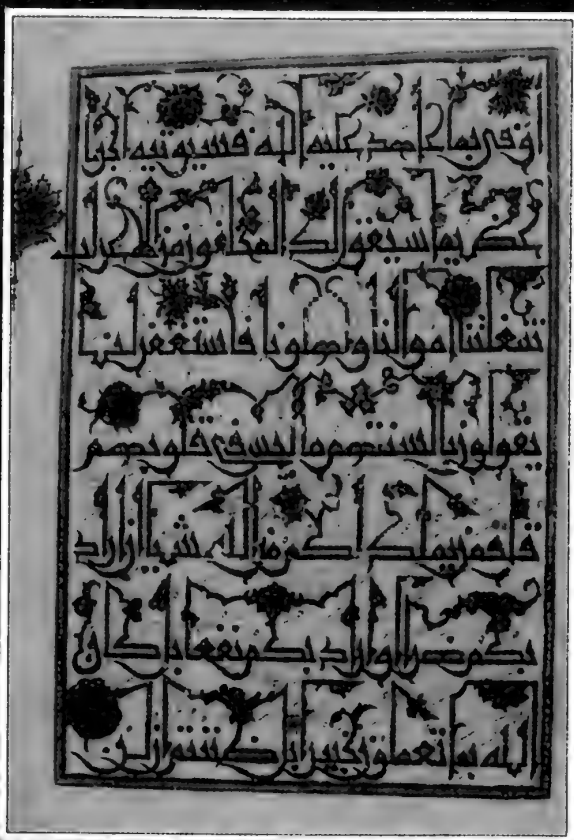 اوفى بما عهد عليه الله فسيوتيه اجرا
عظيما سيقول لك المخلفون من الاعراب
شغلتنا اموالنا واهلونا فاستغفر لنا
يقولون بالسنتهم ما ليس في قلوبهم
قل فمن يملك لكم من الله شيئا ان اراد
بكم ضرا او اراد بكم نفعا بل كان
الله بما تعملون خبيرا بل ظننتم ان لن